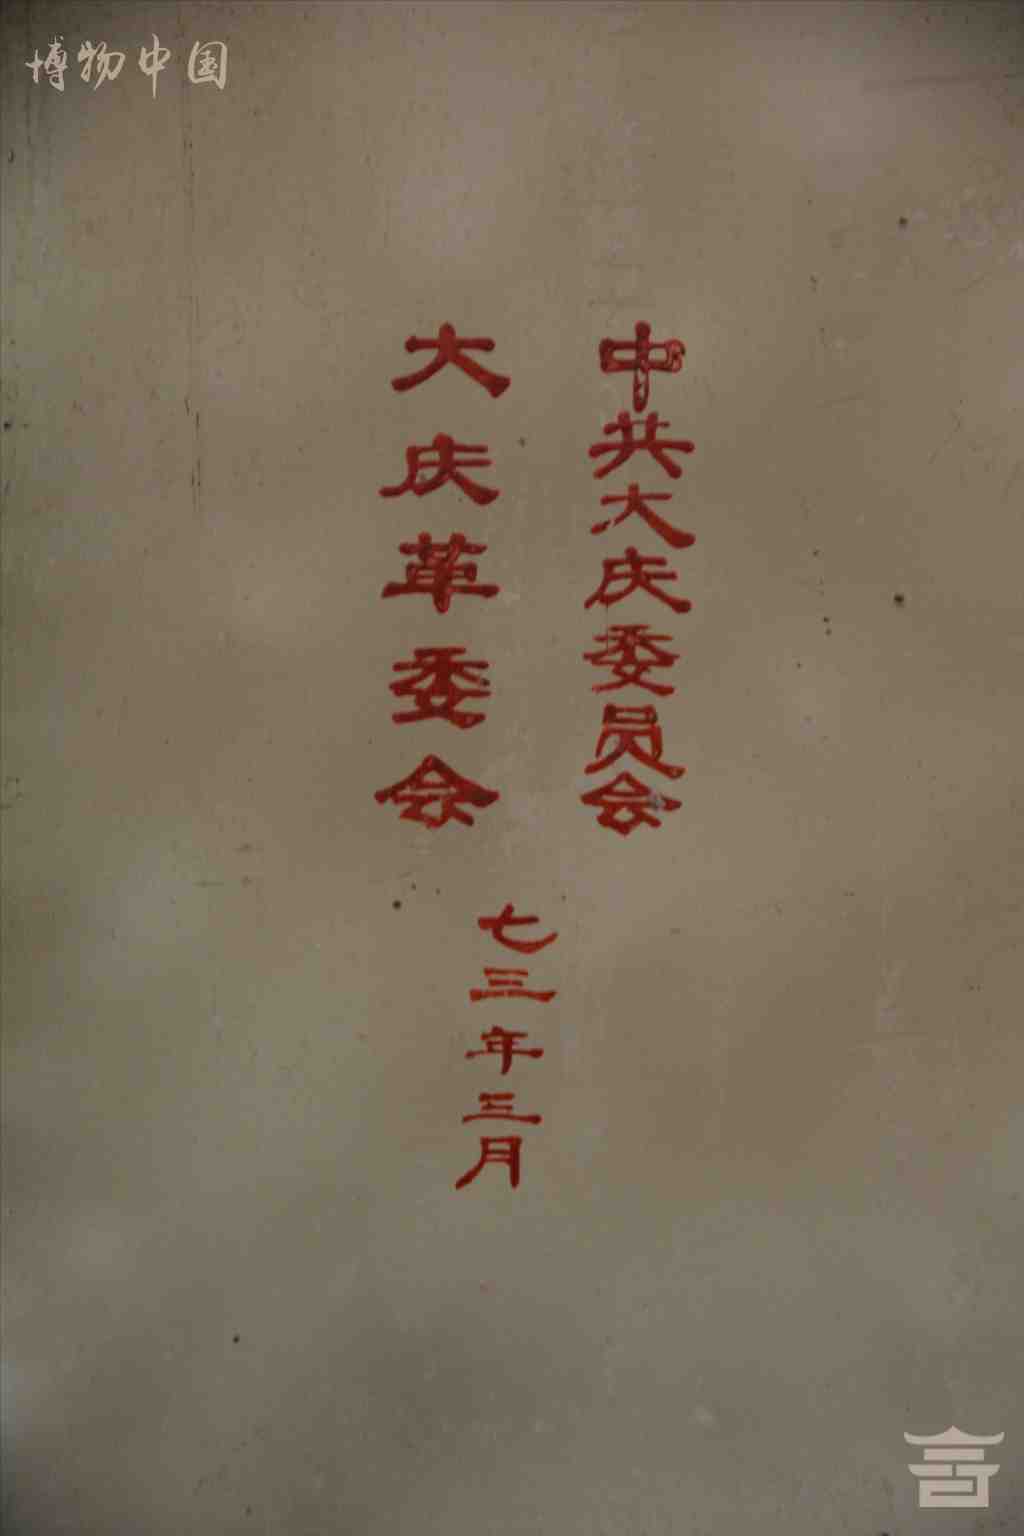 博物中国
中共大庆委员会
大庆革委会
七三年三月